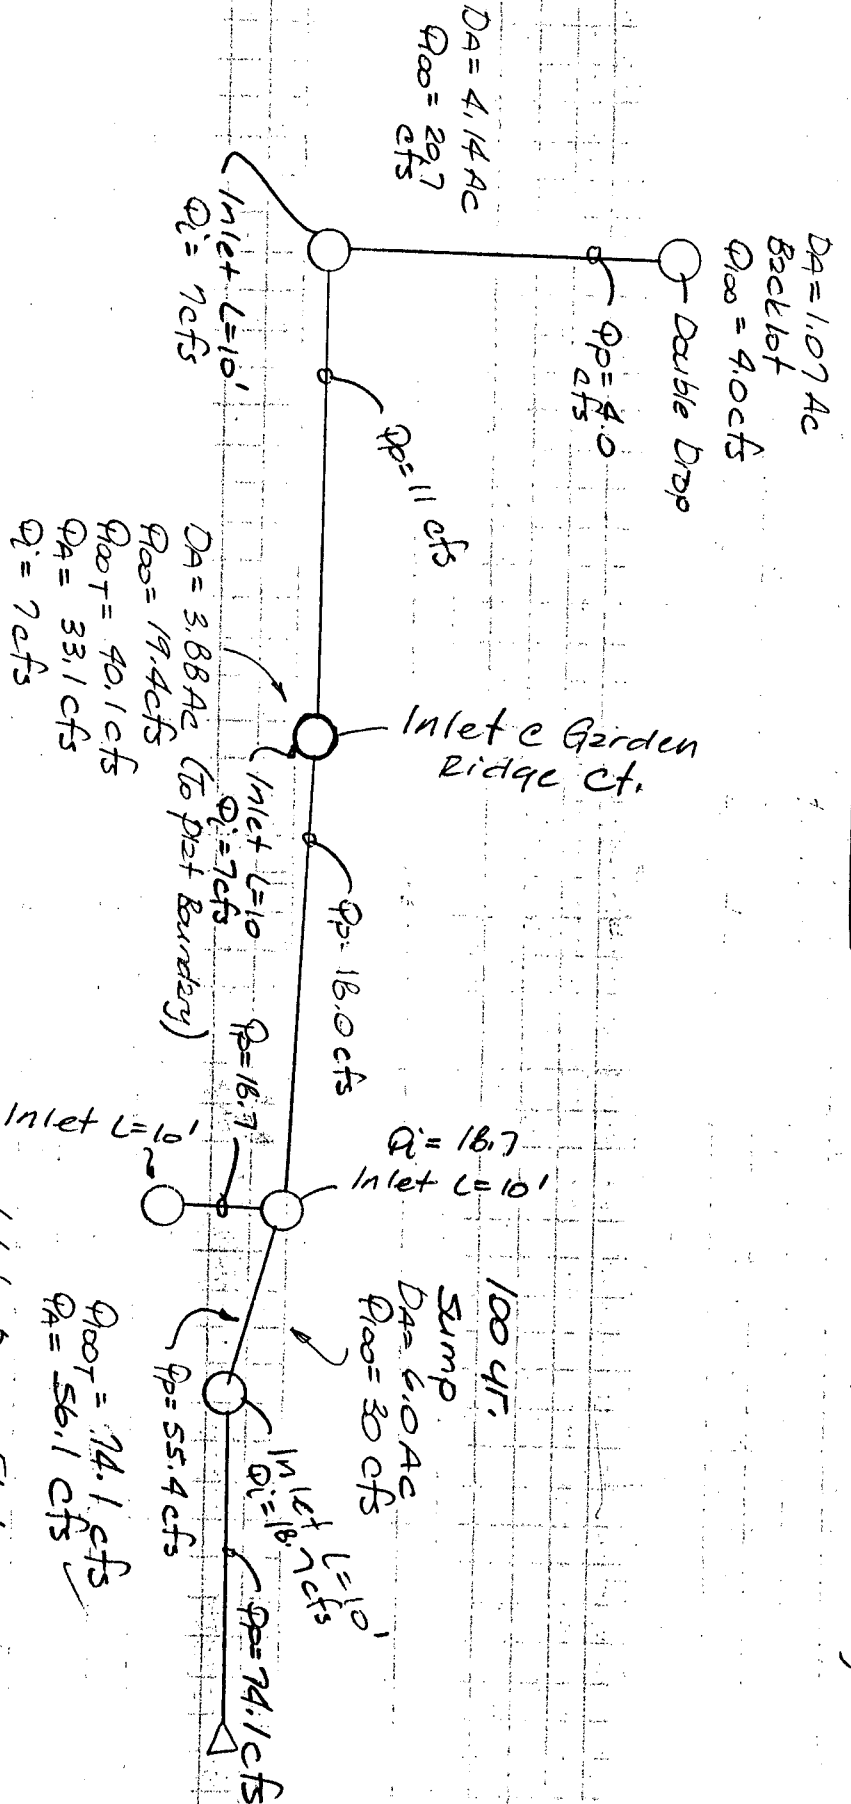 DA= 1.07 Ac
Backlot
Q100 = 4.0 cfs
Double Drop
Qp= 4.0
cfs
DA= 4.14 Ac
Q100= 20.7
cfs
Inlet L=10'
Qi= 7cfs
Qp= 11 cfs
Inlet @ Garden
Ridge Ct.
Inlet L=10
Qi=7cfs
DA= 3.88 Ac (To plat Boundary)
Q100= 19.4cfs
Q100T= 40.1 cfs
QA= 33.1 cfs
Qi= 7cfs
Qp= 18.0 cfs
Qp=18.7
Inlet L=10'
Qi= 18.7
Inlet L=10'
100 yr.
Sump
DA= 6.0 Ac
Q100= 30 cfs
Qp= 55.4 cfs
Inlet L=10'
Qi=18.7cfs
Qp=74.1 cfs
Q100T= 74.1 cfs
QA= 56.1 cfs ✓